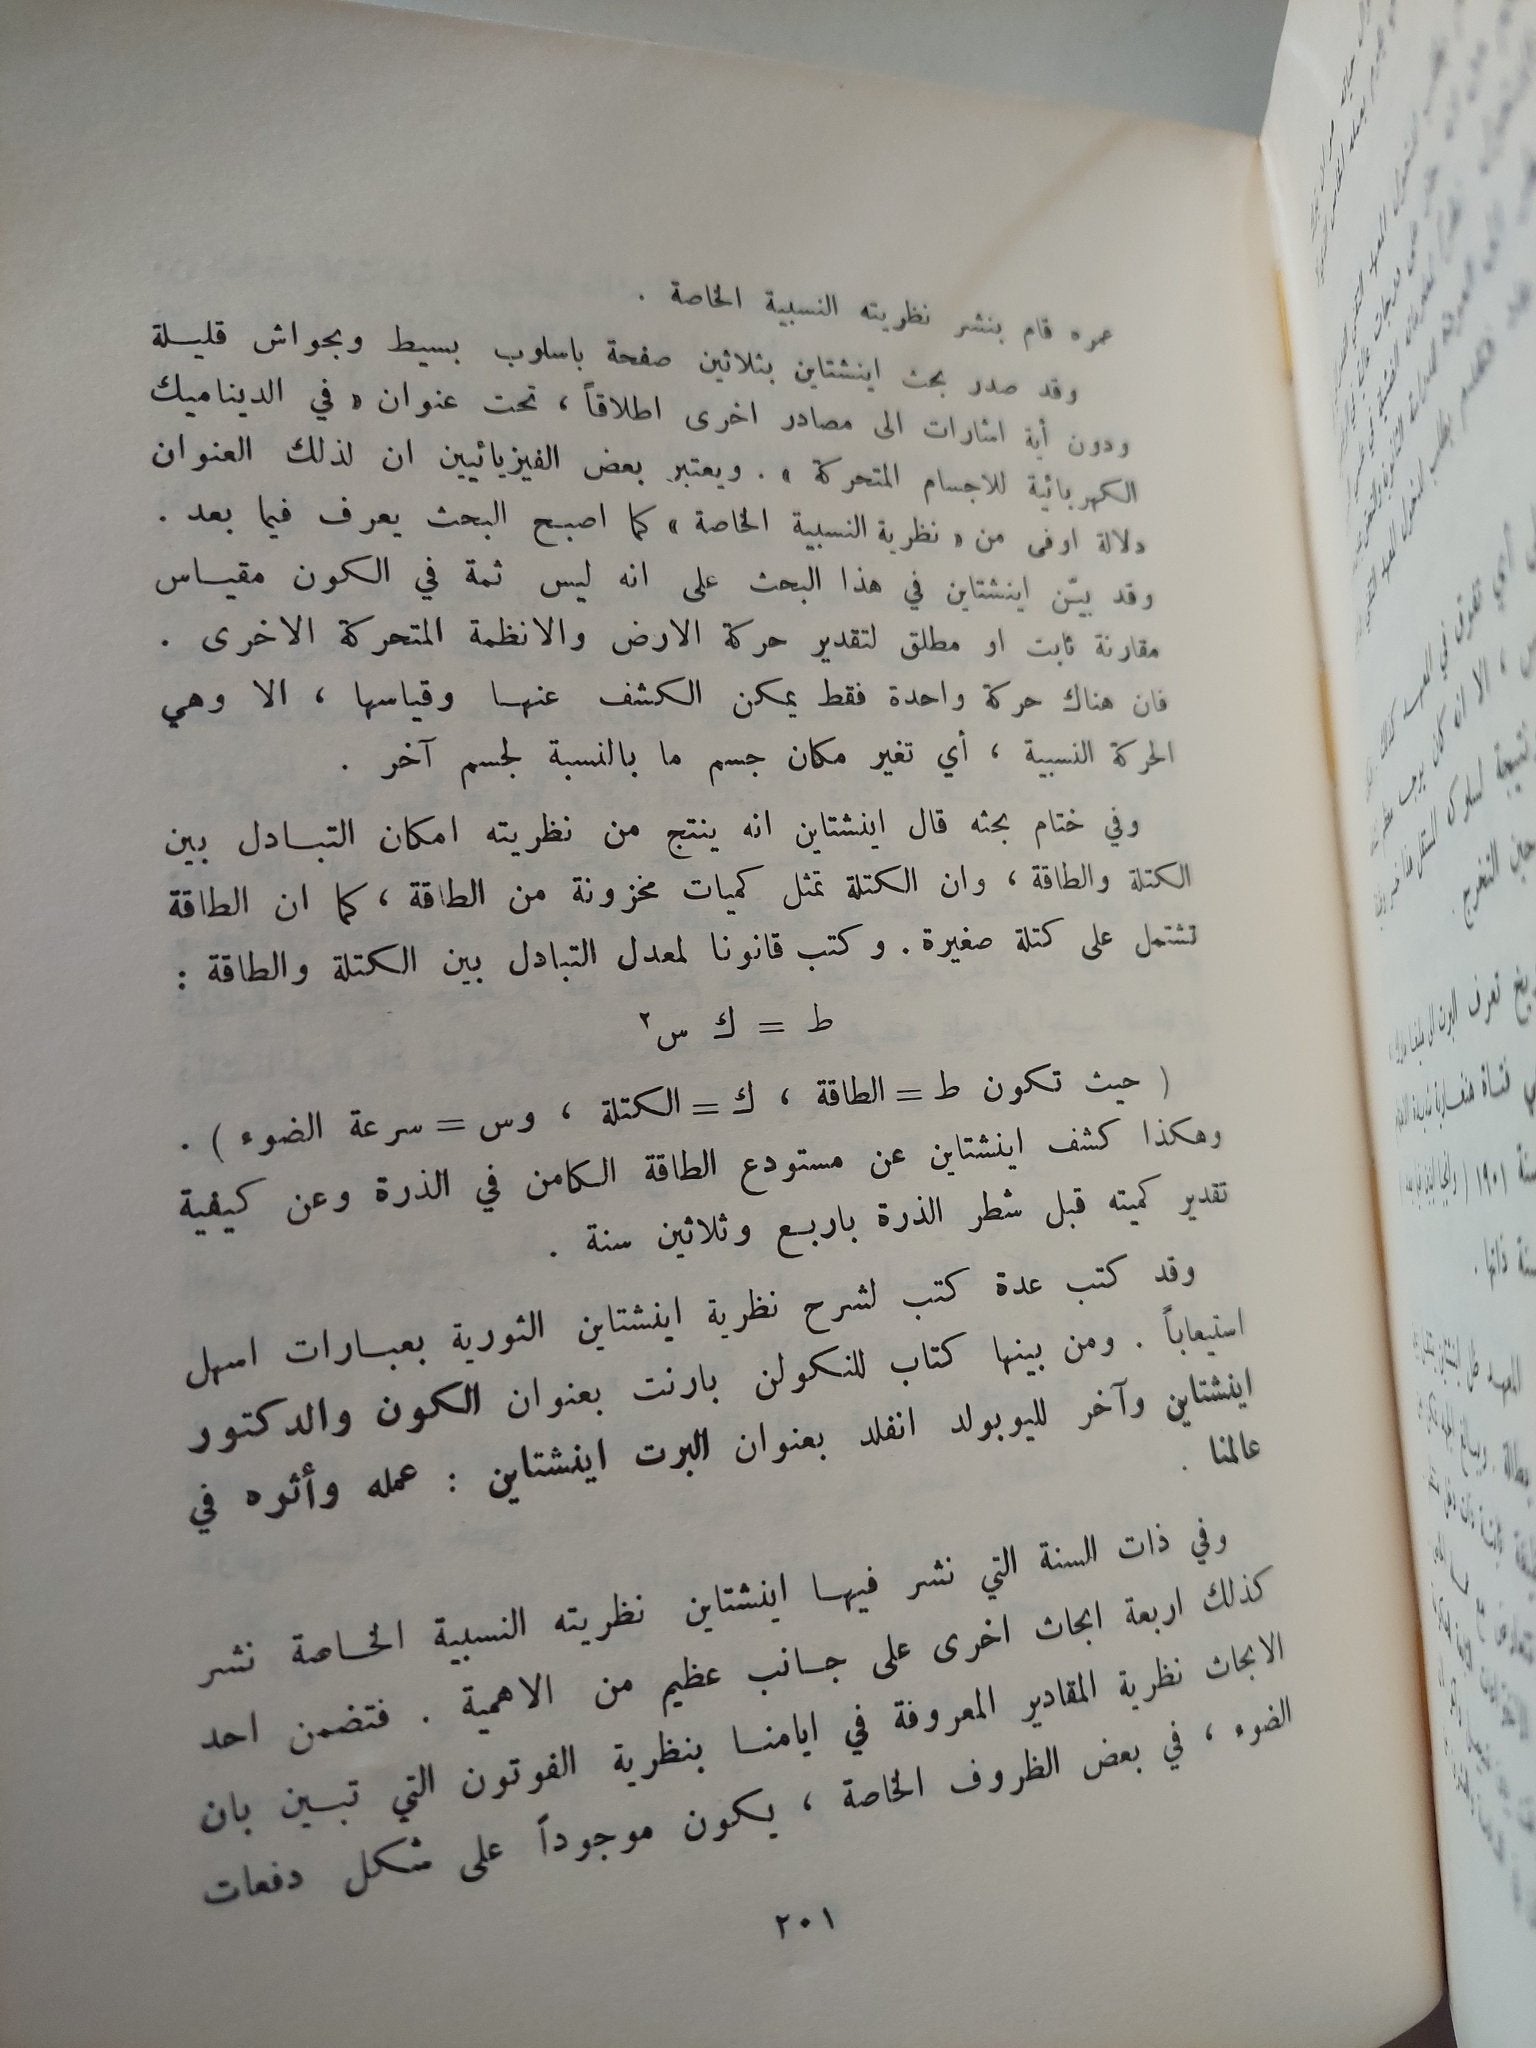 عمره قام بنشر نظريته النسبية الخاصة .
وقد صدر بحث اينشتاين بثلاثين صفحة باسلوب بسيط وبحواش قليلة
ودون أية اشارات الى مصادر اخرى اطلاقاً ، تحت عنوان « في الديناميك
الكهربائية للاجسام المتحركة » . ويعتبر بعض الفيزيائيين ان لذلك العنوان
دلالة اوفى من « نظرية النسبية الخاصة » كما اصبح البحث يعرف فيما بعد .
وقد بيّن اينشتاين في هذا البحث على انه ليس ثمة في الكون مقياس
مقارنة ثابت او مطلق لتقدير حركة الارض والانظمة المتحركة الاخرى .
فان هناك حركة واحدة فقط يمكن الكشف عنها وقياسها ، الا وهي
الحركة النسبية ، أي تغير مكان جسم ما بالنسبة لجسم آخر .
وفي ختام بحثه قال اينشتاين انه ينتج من نظريته امكان التبادل بين
الكتلة والطاقة ، وان الكتلة تمثل كميات مخزونة من الطاقة ، كما ان الطاقة
تشتمل على كتلة صغيرة . وكتب قانونا لمعدل التبادل بين الكتلة والطاقة :
ط = ك س٢
( حيث تكون ط = الطاقة ، ك = الكتلة ، وس = سرعة الضوء ) .
وهكذا كشف اينشتاين عن مستودع الطاقة الكامن في الذرة وعن كيفية
تقدير كميته قبل شطر الذرة باربع وثلاثين سنة .
وقد كتب عدة كتب لشرح نظرية اينشتاين الثورية بعبارات اسهل
استيعاباً . ومن بينها كتاب للنكولن بارنت بعنوان الكون والدكتور
اينشتاين وآخر لليوبولد انفلد بعنوان البرت اينشتاين : عمله وأثره في
عالمنا .
وفي ذات السنة التي نشر فيها اينشتاين نظريته النسبية الخاصة نشر
كذلك اربعة ابحاث اخرى على جانب عظيم من الاهمية . فتضمن احد
الابحاث نظرية المقادير المعروفة في ايامنا بنظرية الفوتون التي تبين بان
الضوء ، في بعض الظروف الخاصة ، يكون موجوداً على شكل دفعات
٢٠١